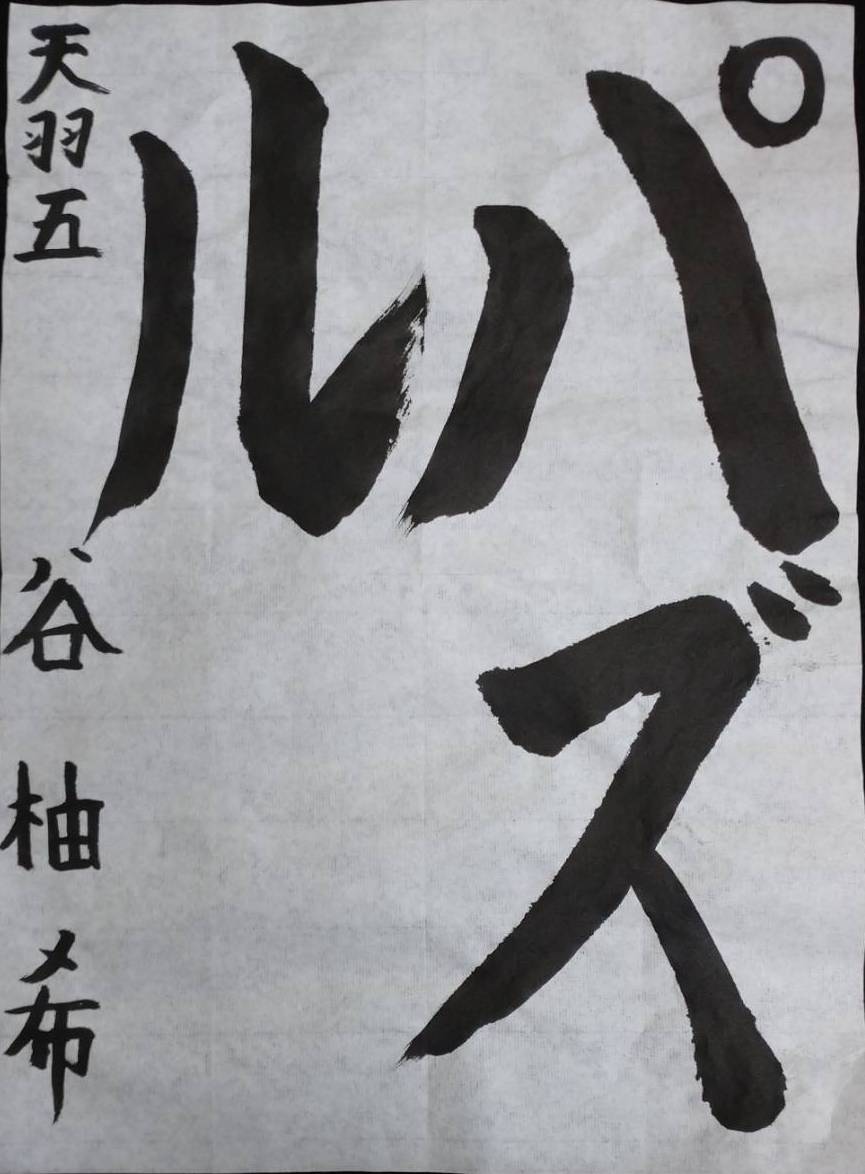 パズ
ル
天羽五 谷 柚 希